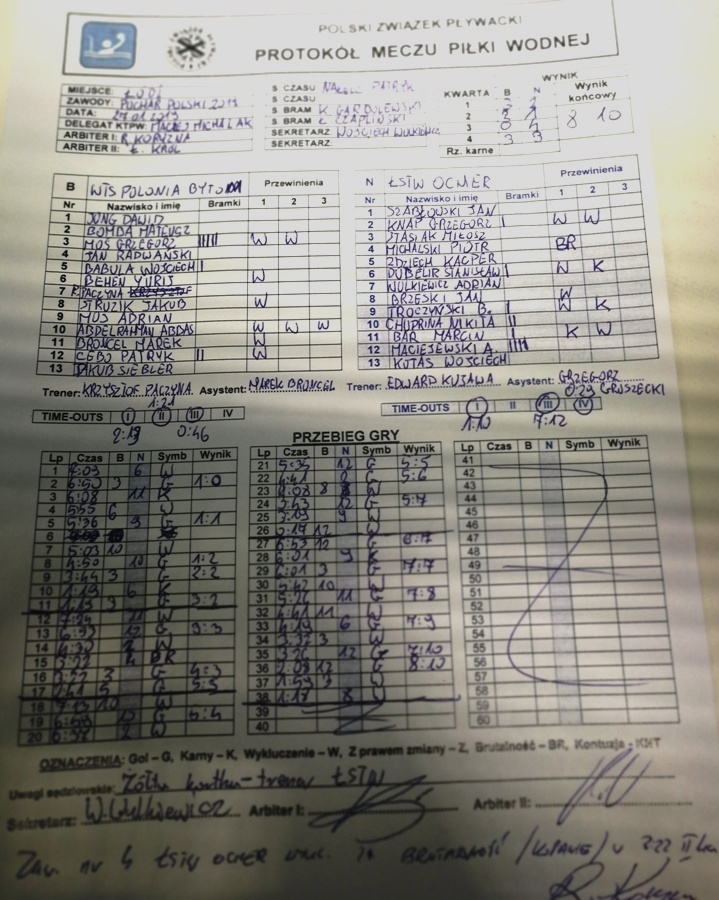 POLSKI ZWIĄZEK PŁYWACKI
PROTOKÓŁ MECZU PIŁKI WODNEJ
MIEJSCE: ŁÓDŹ
ZAWODY: PUCHAR POLSKI 2019
DATA:
DELEGAT KTPW: MACIEJ MICHALAK
ARBITER I: R. KORYZNA
ARBITER II: Ł. KRÓL
S CZASU PATRYK
S CZASU
S BRAM K. GARBOLEWSKI
S BRAM Ł. CZAPLIŃSKI
SEKRETARZ WOJCIECH WULKIEWICZ
SEKRETARZ:
KWARTA B N WYNIK Wynik końcowy
1 3 2
2 2 1 8 10
3 0 4
4 3 3
Rz. karne
B WTS POLONIA BYTOM Przewinienia
Nr Nazwisko i imię Bramki 1 2 3
1 JUNG DAWID
2 BOMBA MATEUSZ
3 MOS GRZEGORZ IIIII W W
4 JAN RADWAŃSKI
5 BABULA WOJCIECH I
6 BEHEN YURIJ W
7 PACZYNA
8 STRUZIK JAKUB W
9 MUS ADRIAN
10 ABDELRAHMAN ABBAS W W W
11 BRONCEL MAREK W
12 CEBO PATRYK II W
13 JAKUB SIEBLER
N ŁSTW OCMER Przewinienia
Nr Nazwisko i imię Bramki 1 2 3
1 SZABŁOWSKI JAN
2 KNAP GRZEGORZ I W W
3 STASIAK MIŁOSZ
4 MICHALSKI PIOTR BR
5 ZDZIECH KACPER
6 DUBELIR STANISŁAW I W K
7 WULKIEWICZ ADRIAN
8 BRZESKI JAN W
9 TROCZYŃSKI B. I W K
10 CHUPRINA NIKITA II
11 BAR MARCIN I K W
12 MACIEJEWSKI A. IIII
13 KOTAS WOJCIECH
Trener: KRZYSZTOF PACZYNA Asystent: MAREK BRONCEL
Trener: EDWARD KUJAWA Asystent: GRZEGORZ GRUSZECKI
1:21
0:23
TIME-OUTS I II III IV
TIME-OUTS I II III IV
0:46
1:10 7:12
PRZEBIEG GRY
Lp Czas B N Symb Wynik
1 6 W
2 6:50 3 G 1:0
3 6:08 11 K
4 5:55 6 W
5 5:36 9 G 1:1
6
7 5:03 10 W
8 4:50 10 G 1:2
9 3:44 3 G 2:2
10 1:19 6 K
11 1:19 3 G 3:2
12 7:24 11 W
13 12 G 3:3
14 4:30 2 W
15 3:22 4 BR
16 3:22 3 G 4:3
17 5 G 5:3
18 7:13 10 W
19 10 G 5:4
20 2 W
Lp Czas B N Symb Wynik
21 5:34 12 G 5:5
22 4:41 2 G 5:6
23 8 W
24 3:43 12 G 5:7
25 9 W
26 12 W
27 6:53 12 G 6:7
28 6:01 9 K
29 6:01 3 G 7:7
30 5:42 10 W
31 11 G 7:8
32 4:41 11 W
33 4:19 6 G 7:9
34 3 W
35 12 G 7:10
36 12 G 8:10
37 3 W
38 1:17 8 W
39
40
Lp Czas B N Symb Wynik
41
42
43
44
45
46
47
48
49
50
51
52
53
54
55
56
57
58
59
60
OZNACZENIA: Gol – G, Karny – K, Wykluczenie – W, Z prawem zmiany – Z, Brutalność – BR, Kontuzja - KNT
Uwagi sędziowskie: Żółta kartka – trener ŁSTW
Sekretarz: W. Wulkiewicz Arbiter I: Arbiter II:
Zaw. nr 4 ŁSTW OCMER wykl. za BRUTALNOŚĆ / KOPANIE / w 3:22 II kw